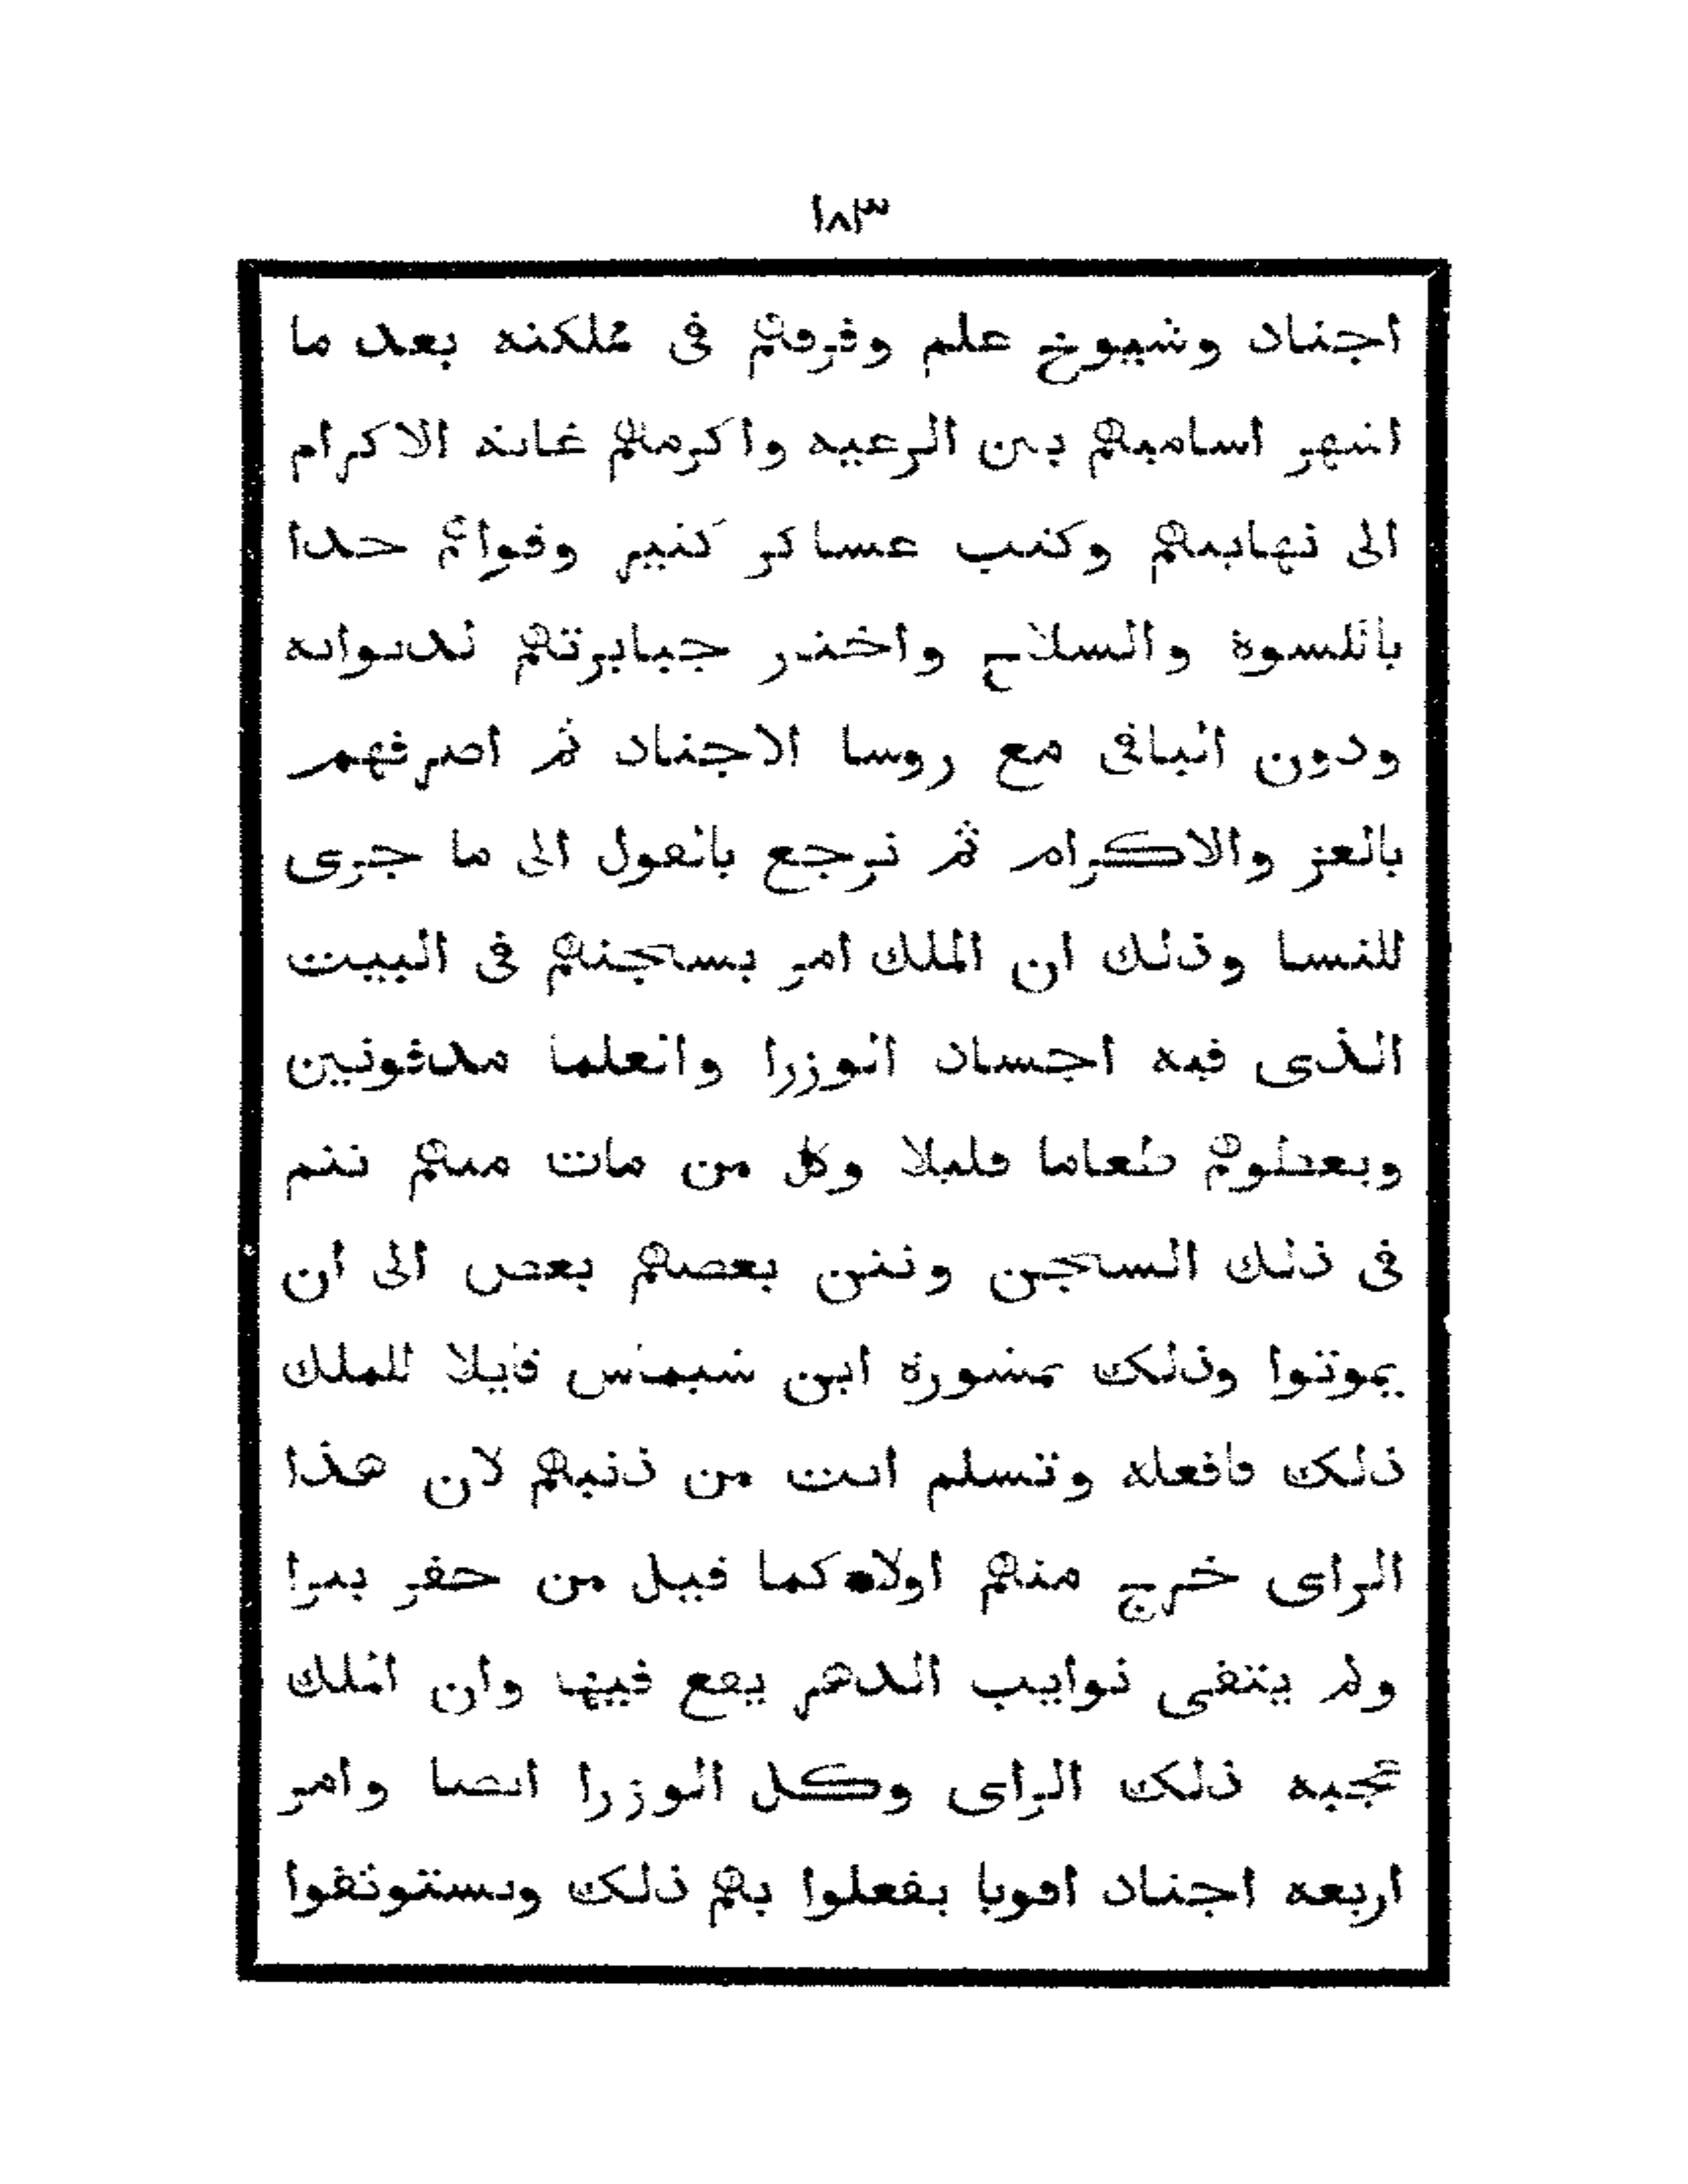 ١٨٣
اجناد وشيوخ علم وفرقهم فى مملكته بعد ما
اشهر اساميهم بين الرعيه واكرمهم غاية الاكرام
الى نهايتهم وكتب عساكر كثير وقواهم جدا
باللسوة والسلاح واختر جبابرتهم لديوانه
ودون الباقى مع روسا الاجناد ثم اصرفهم
بالعز والاكرام ثم نرجع بالقول الى ما جرى
للنسا وذلك ان الملك امر بسجنهم فى البيت
الذى فيه اجساد الوزرا والعلما مدفونين
ويعطوهم طعاما قليلا وكل من مات منهم يتم
فى ذلك السجن وينتن بعضهم بعض الى ان
يموتوا وذلك بمشورة ابن شيماس قايلا للملك
ذلك فافعله وتسلم انت من ذنبهم لان هذا
الراى خرج منهم اولا* كما قيل من حفر بيرا
ولم يتقى نوايب الدهر يقع فيها وان الملك
عجبه ذلك الراى وكل الوزرا ايضا وامر
اربعه اجناد اقويا يفعلوا بهم ذلك ويستوثقوا